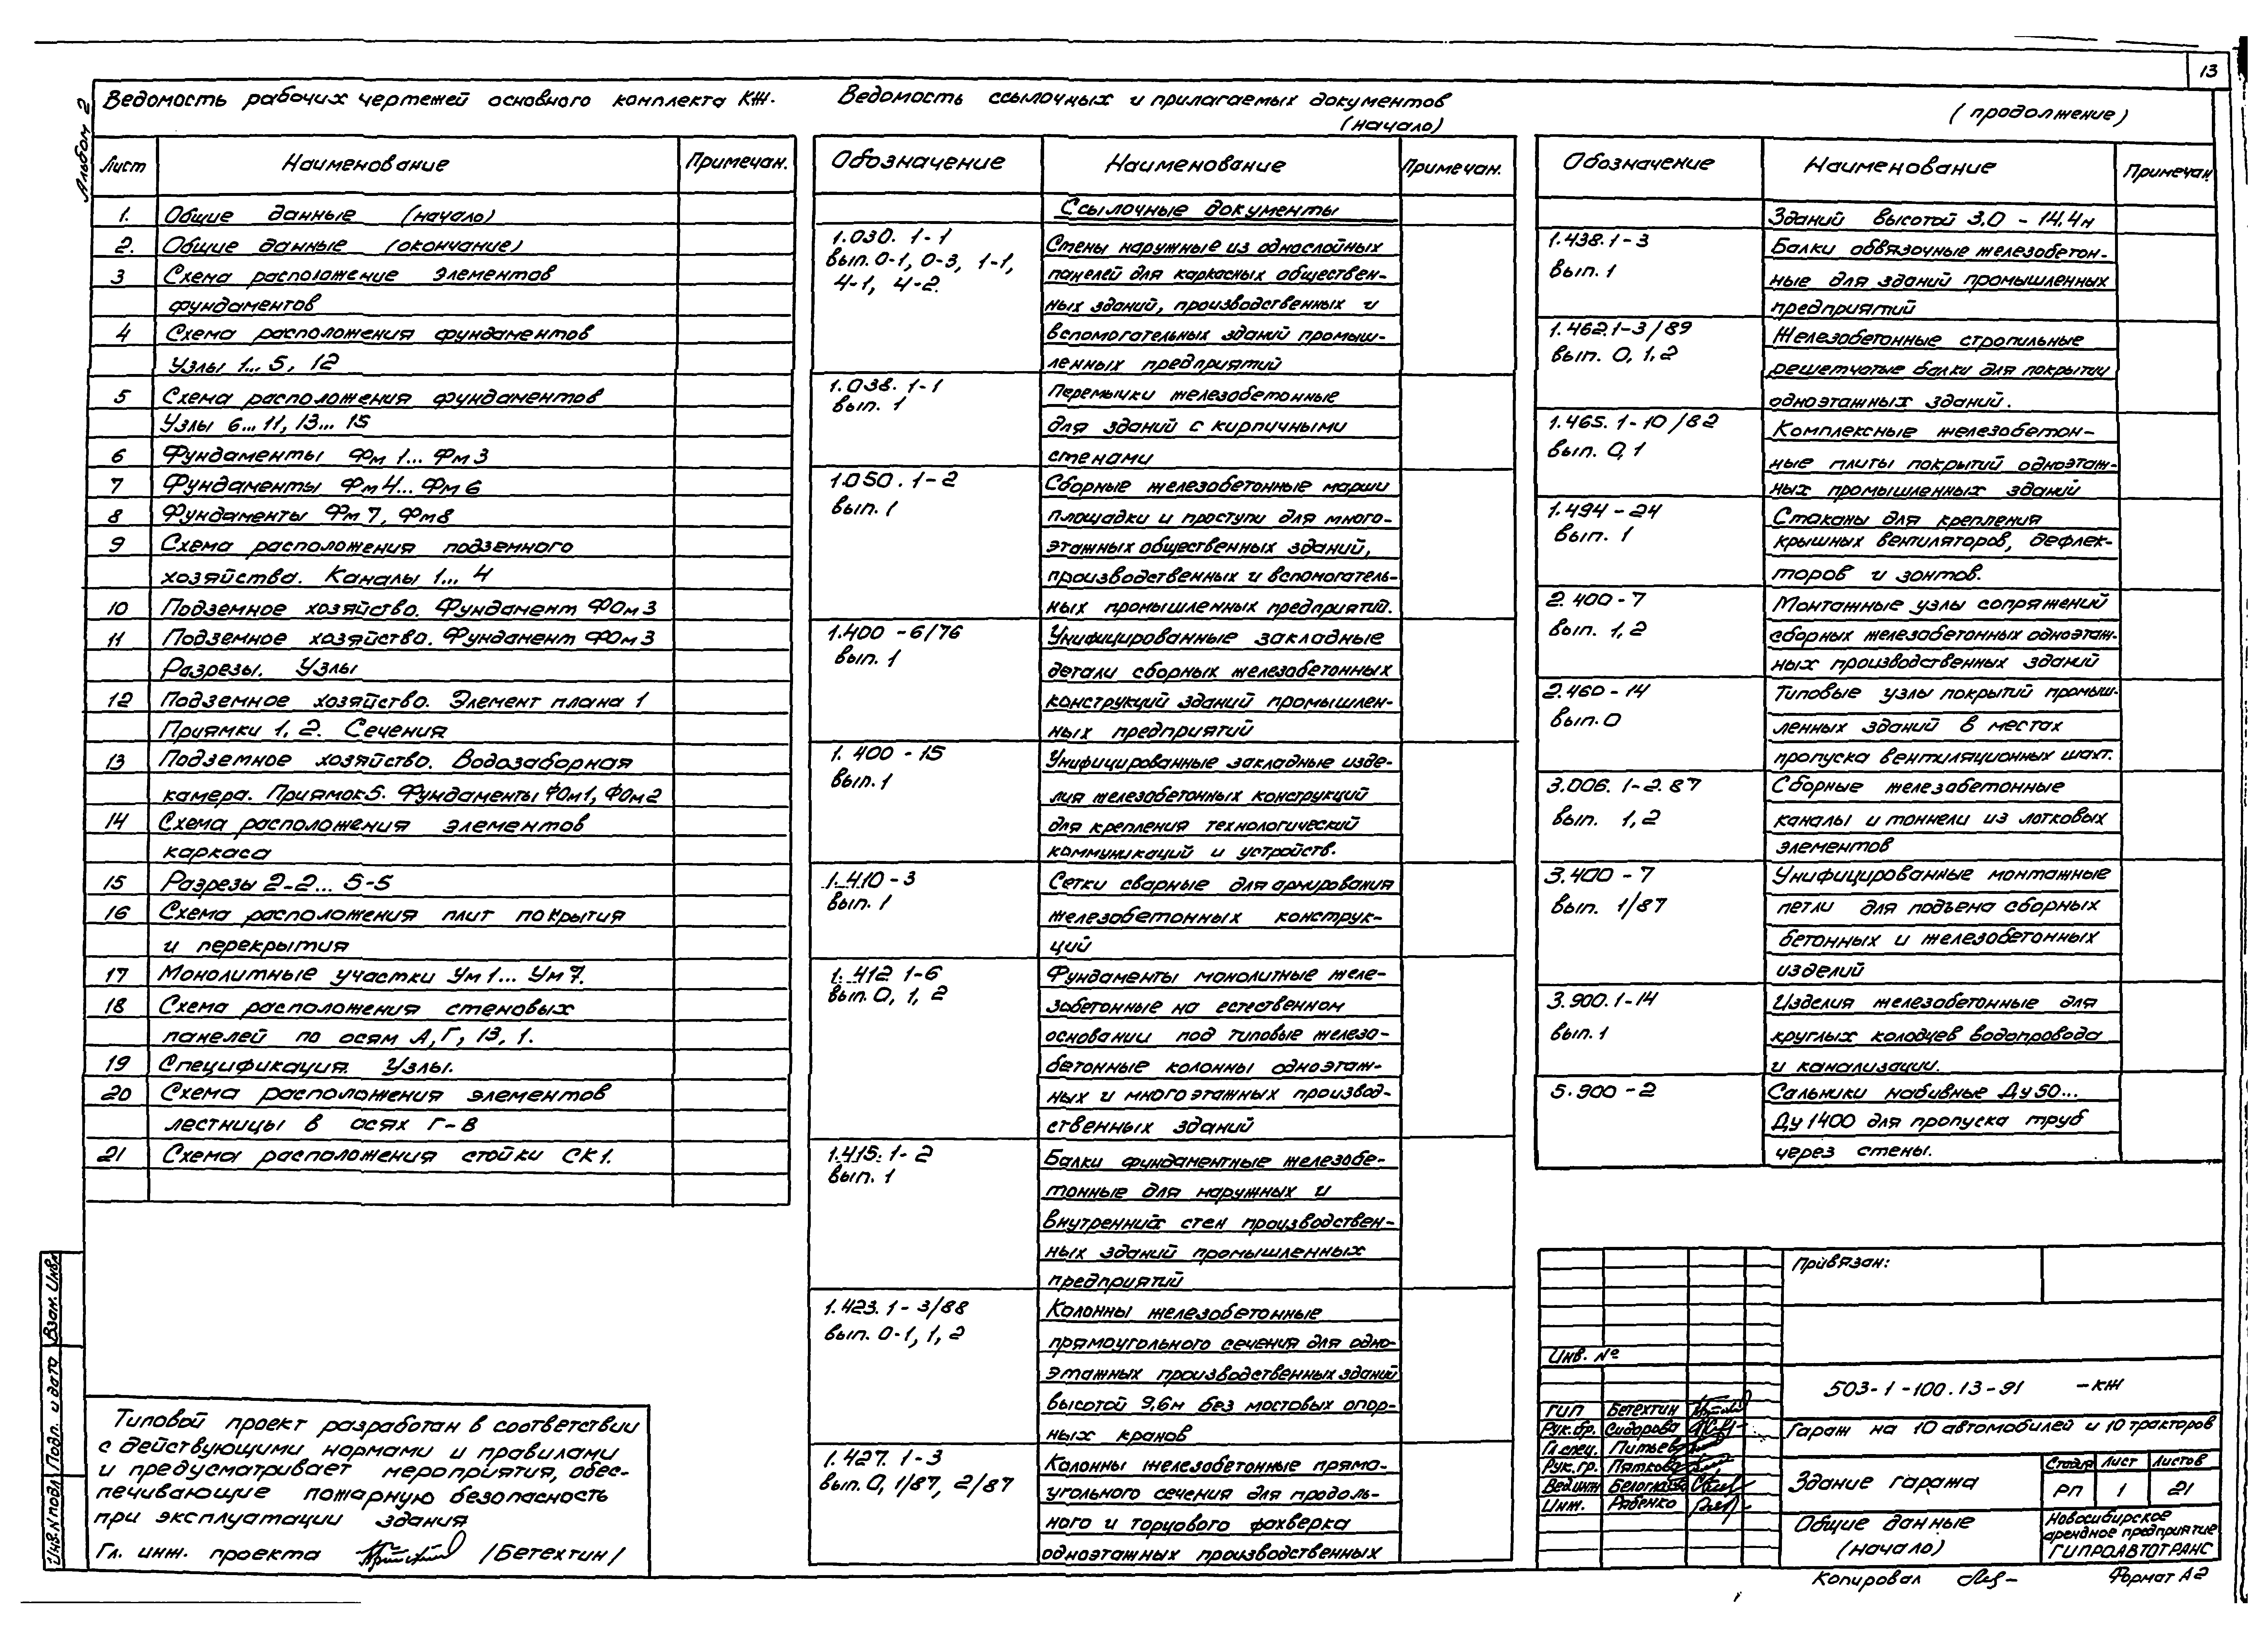 13
Альбом 2
Ведомость рабочих чертежей основного комплекта КЖ.
Лист Наименование Примечан.
1. Общие данные (начало)
2. Общие данные (окончание)
3 Схема расположение элементов
фундаментов
4 Схема расположения фундаментов
Узлы 1... 5, 12
5 Схема расположения фундаментов
Узлы 6... 11, 13... 15
6 Фундаменты Фм 1... Фм 3
7 Фундаменты Фм 4... Фм 6
8 Фундаменты Фм 7, Фм 8
9 Схема расположения подземного
хозяйства. Каналы 1... 4
10 Подземное хозяйство. Фундамент ФОм 3
11 Подземное хозяйство. Фундамент ФОм 3
Разрезы. Узлы
12 Подземное хозяйство. Элемент плана 1
Приямки 1, 2. Сечения
13 Подземное хозяйство. Водозаборная
камера. Приямок 5. Фундаменты ФОм 1, ФОм 2
14 Схема расположения элементов
каркаса
15 Разрезы 2-2... 5-5
16 Схема расположения плит покрытия
и перекрытия
17 Монолитные участки Ум 1... Ум 7.
18 Схема расположения стеновых
панелей по осям А, Г, 13, 1.
19 Спецификация. Узлы.
20 Схема расположения элементов
лестницы в осях Г-В
21 Схема расположения стойки СК1.
Типовой проект разработан в соответствии
с действующими нормами и правилами
и предусматривает мероприятия, обес-
печивающие пожарную безопасность
при эксплуатации здания
Гл. инж. проекта /Бетехтин/
Ведомость ссылочных и прилагаемых документов
(начало)
Обозначение Наименование Примечан.
Ссылочные документы
1.030. 1-1 Стены наружные из однослойных
вып. 0-1, 0-3, 1-1, панелей для каркасных обществен-
4-1, 4-2. ных зданий, производственных и
вспомогательных зданий промыш-
ленных предприятий
1.038. 1-1 Перемычки железобетонные
вып. 1 для зданий с кирпичными
стенами
1.050. 1-2 Сборные железобетонные марши
вып. 1 площадки и проступи для много-
этажных общественных зданий,
производственных и вспомогатель-
ных промышленных предприятий.
1.400 -6/76 Унифицированные закладные
вып. 1 детали сборных железобетонных
конструкций зданий промышлен-
ных предприятий
1. 400 - 15 Унифицированные закладные изде-
вып. 1 лия железобетонных конструкций
для крепления технологический
коммуникаций и устройств.
1.410 - 3 Сетки сварные для армирования
вып. 1 железобетонных конструк-
ций
1. 412 1-6 Фундаменты монолитные желе-
вып. 0, 1, 2 зобетонные на естественном
основании под типовые железо-
бетонные колонны одноэтаж-
ных и многоэтажных производ-
ственных зданий
1.415. 1-2 Балки фундаментные железобе-
вып. 1 тонные для наружных и
внутренних стен производствен-
ных зданий промышленных
предприятий
1.423. 1 - 3/88 Колонны железобетонные
вып. 0-1, 1, 2 прямоугольного сечения для одно-
этажных производственных зданий
высотой 9,6м без мостовых опор-
ных кранов
1.427. 1-3 Колонны железобетонные прямо-
вып. 0, 1/87, 2/87 угольного сечения для продоль-
ного и торцового фахверка
одноэтажных производственных
(продолжение)
Обозначение Наименование Примечан
Зданий высотой 3.0 - 14,4м
1.438.1-3 Балки обвязочные железобетон-
вып. 1 ные для зданий промышленных
предприятий
1.462.1-3/89 Железобетонные стропильные
вып. 0, 1, 2 решетчатые балки для покрытий
одноэтажных зданий.
1.465. 1-10/82 Комплексные железобетон-
вып. 0,1 ные плиты покрытий одноэтаж-
ных промышленных зданий
1.494 - 24 Стаканы для крепления
вып. 1 крышных вентиляторов, дефлек-
торов и зонтов.
2.400 - 7 Монтажные узлы сопряжений
вып. 1,2 сборных железобетонных одноэтаж-
ных производственных зданий
2.460 - 14 Типовые узлы покрытий промыш-
вып. 0 ленных зданий в местах
пропуска вентиляционных шахт.
3.006. 1-2.87 Сборные железобетонные
вып. 1,2 каналы и тоннели из лотковых
элементов
3.400 - 7 Унифицированные монтажные
вып. 1/87 петли для подъема сборных
бетонных и железобетонных
изделий
3.900.1-14 Изделия железобетонные для
вып. 1 круглых колодцев водопровода
и канализации.
5.900 - 2 Сальники набивные Ду 50...
Ду 1400 для пропуска труб
через стены.
Привязан:
Инв. №
503-1-100.13-91 -КЖ
ГИП Бетехтин
Рук.бр. Сидорова
Гл.спец. Питьев
Рук.гр. Пяткова
Вед.инж
Инж. Рябенко
Гараж на 10 автомобилей и 10 тракторов
Здание гаража
Стадия Лист Листов
РП 1 21
Общие данные
(начало)
Новосибирское
арендное предприятие
ГИПРОАВТОТРАНС
Копировал
Формат А2
Взам. Инв.
Подп. и дата
Инв. N подл